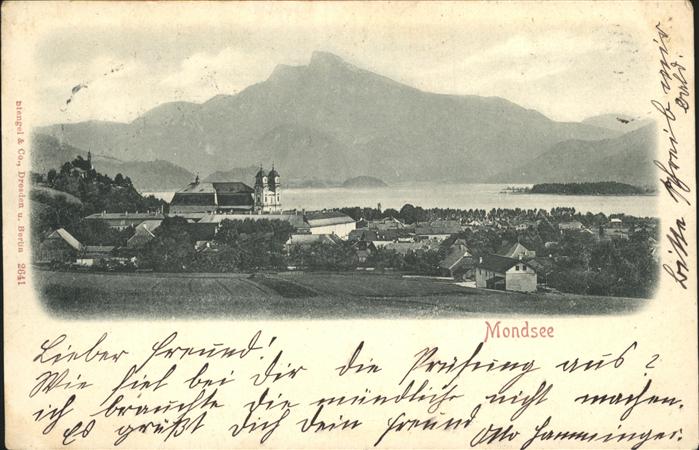 Stengel & Co., Dresden u. Berlin 2641
Mondsee
Lieber Freund!
Wie fiel bei dir die Prüfung aus?
ich brauchte die mündliche nicht machen.
Es grüßt dich dein Freund
Otto Hamminger.
bitte schreib mir
bald.